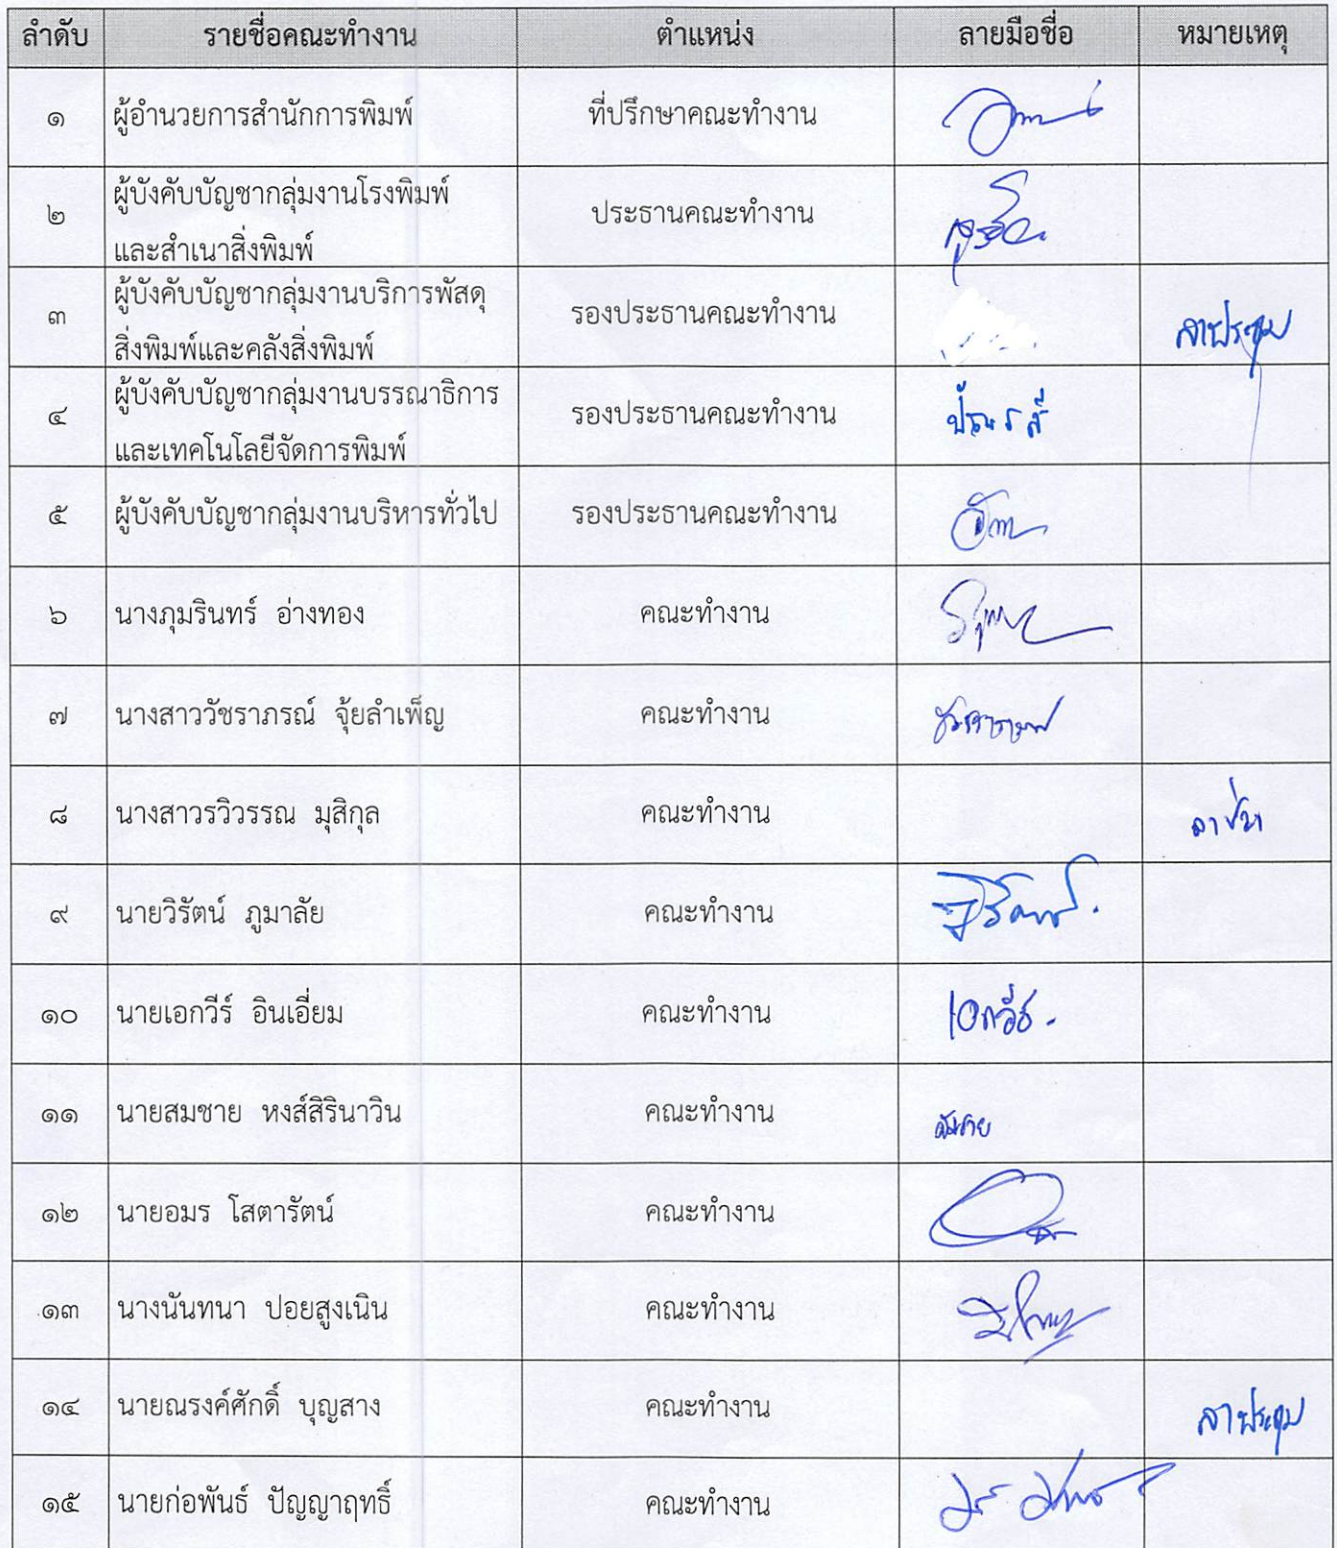 ลำดับ รายชื่อคณะทำงาน ตำแหน่ง ลายมือชื่อ หมายเหตุ
๑ ผู้อำนวยการสำนักการพิมพ์ ที่ปรึกษาคณะทำงาน
๒ ผู้บังคับบัญชากลุ่มงานโรงพิมพ์ ประธานคณะทำงาน
และสำเนาสิ่งพิมพ์
๓ ผู้บังคับบัญชากลุ่มงานบริการพัสดุ รองประธานคณะทำงาน ลาประชุม
สิ่งพิมพ์และคลังสิ่งพิมพ์
๔ ผู้บังคับบัญชากลุ่มงานบรรณาธิการ รองประธานคณะทำงาน
และเทคโนโลยีจัดการพิมพ์
๕ ผู้บังคับบัญชากลุ่มงานบริหารทั่วไป รองประธานคณะทำงาน
๖ นางภุมรินทร์ อ่างทอง คณะทำงาน
๗ นางสาววัชราภรณ์ จุ้ยลำเพ็ญ คณะทำงาน
๘ นางสาวรวิวรรณ มุสิกุล คณะทำงาน
๙ นายวิรัตน์ ภูมาลัย คณะทำงาน
๑๐ นายเอกวีร์ อินเอี่ยม คณะทำงาน เอกวีร์
๑๑ นายสมชาย หงส์สิรินาวิน คณะทำงาน สมชาย
๑๒ นายอมร โสตารัตน์ คณะทำงาน
๑๓ นางนันทนา ปอยสูงเนิน คณะทำงาน
๑๔ นายณรงค์ศักดิ์ บุญสาง คณะทำงาน ลาประชุม
๑๕ นายก่อพันธ์ ปัญญาฤทธิ์ คณะทำงาน